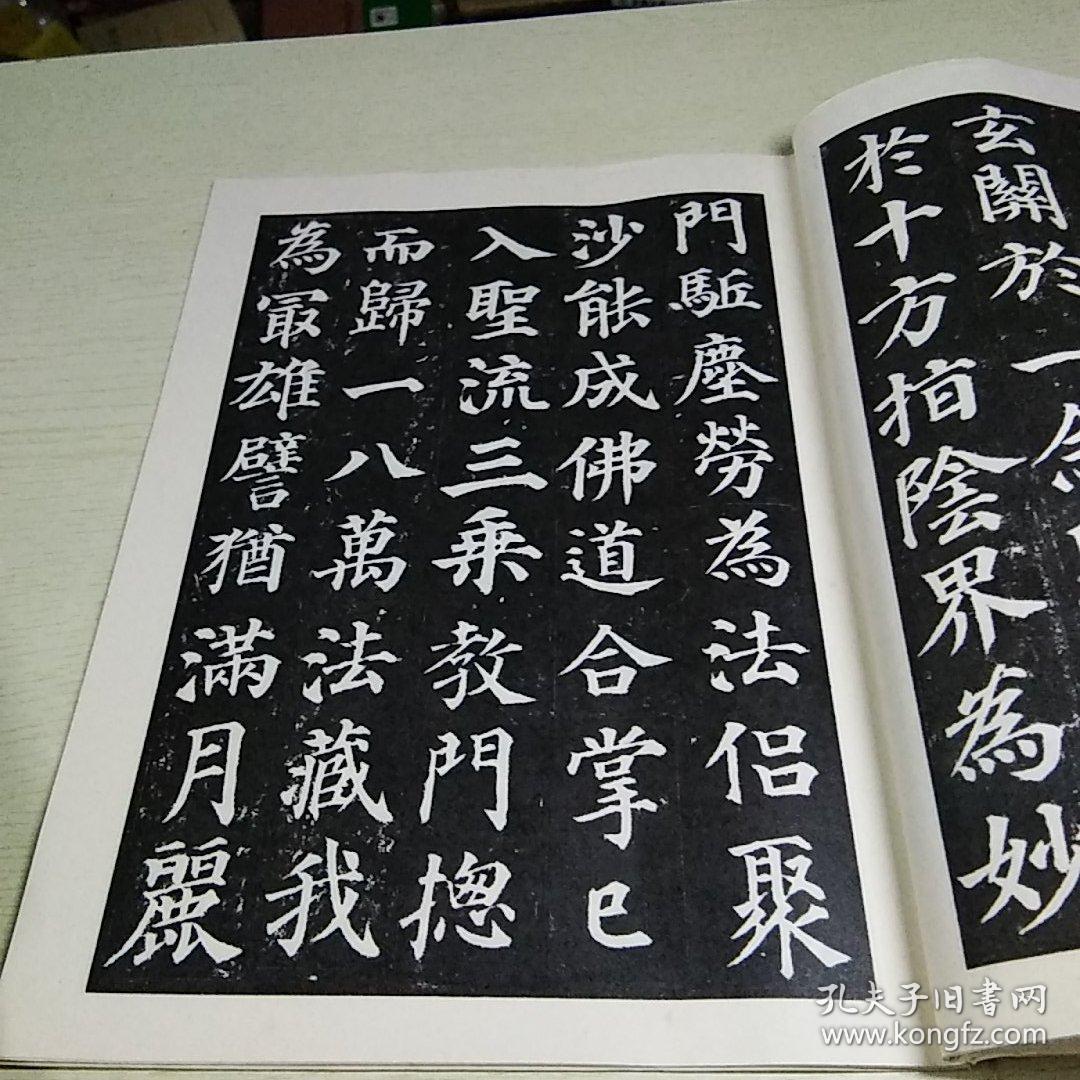 玄關於一
於十方指陰界為妙
門駈塵勞為法侣聚
沙能成佛道合掌已
入聖流三乗教門揔
而歸一八萬法藏我
為冣雄譬猶滿月麗
孔夫子旧书网
www.kongfz.com